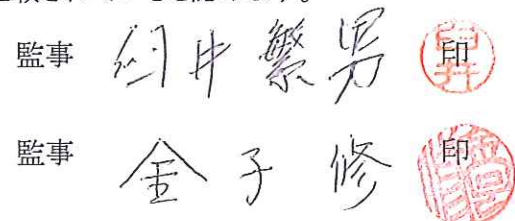 監事 臼井 繁男 印
監事 金子 修 印